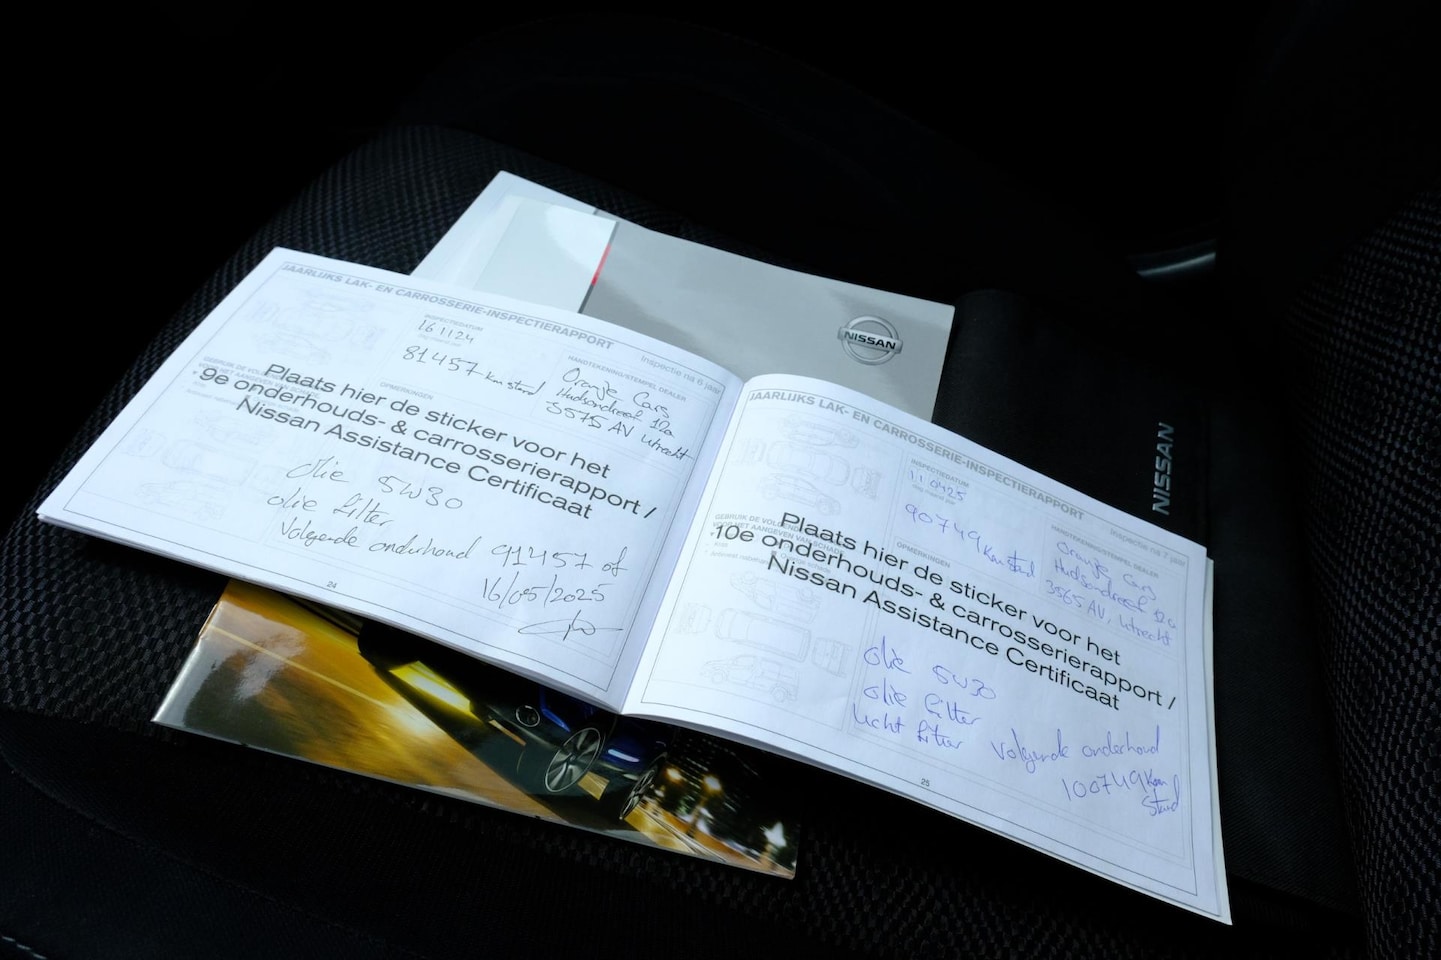 NISSAN
JAARLIJKS LAK- EN CARROSSERIE-INSPECTIERAPPORT
Inspectie na 6 jaar
INSPECTIEDATUM
161124
81457 Km stand
HANDTEKENING/STEMPEL DEALER
Oranje Cars
Hudsondreef 12a
3575 AV Utrecht
OPMERKINGEN
Plaats hier de sticker voor het
9e onderhouds- & carrosserierapport /
Nissan Assistance Certificaat
olie 5W30
olie filter
Volgende onderhoud 91457 of
16/05/2025
24
JAARLIJKS LAK- EN CARROSSERIE-INSPECTIERAPPORT
Inspectie na 7 jaar
INSPECTIEDATUM
110425
90749 Km stand
HANDTEKENING/STEMPEL DEALER
Oranje Cars
Hudsondreef 12a
3565 AV, Utrecht
OPMERKINGEN
Plaats hier de sticker voor het
10e onderhouds- & carrosserierapport /
Nissan Assistance Certificaat
olie 5W30
olie filter
lucht filter
Volgende onderhoud
100749 Km
Stand
25
NISSAN